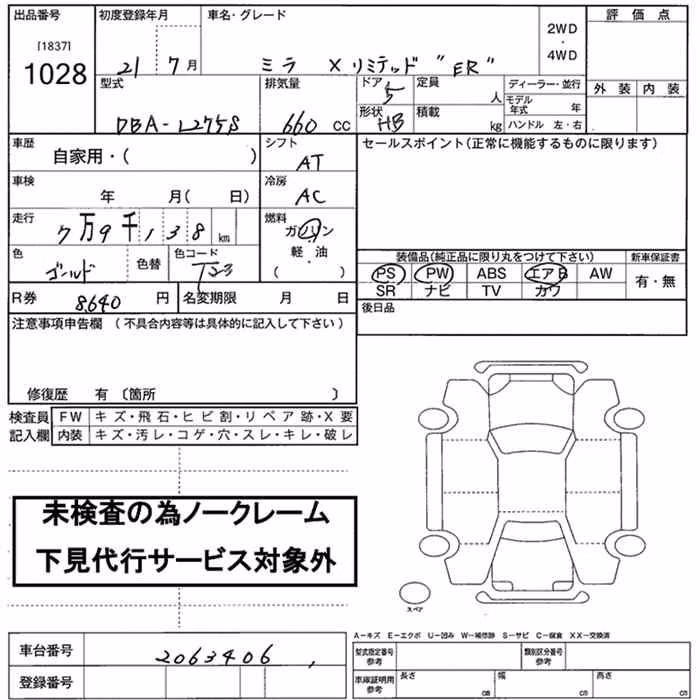 出品番号 初度登録年月 車名・グレード 2WD・4WD 評価点
[1837]
1028 21 7月 ミラ X リミテッド "ER" 外装 内装
型式 排気量 ドア 5 定員 人 ディーラー・並行
DBA-L275S 660 cc 形状 HB 積載 kg モデル年式 年
ハンドル 左・右
車歴 自家用・( ) シフト AT セールスポイント(正常に機能するものに限ります)
車検 年 月( 日) 冷房 AC
走行 7万9千138km 燃料 ガソリン
軽油
( )
色 ゴールド 色替 色コード T23
装備品(純正品に限り丸をつけて下さい) 新車保証書
PS PW ABS エアB AW 有・無
SR ナビ TV カワ
R券 8,640円 名変期限 月 日 後日品
注意事項申告欄(不具合内容等は具体的に記入して下さい)
修復歴 有〔箇所 〕
検査員 FW キズ・飛石・ヒビ割・リペア跡・X要
記入欄 内装 キズ・汚レ・コゲ・穴・スレ・キレ・破レ
未検査の為ノークレーム
下見代行サービス対象外
スペア
A-キズ E-エクボ U-凹み W-補修跡 S-サビ C-腐食 XX-交換済
車台番号 2063406 型式指定番号 参考 類別区分番号 参考
登録番号 車庫証明用 参考 長さ cm 幅 cm 高さ cm